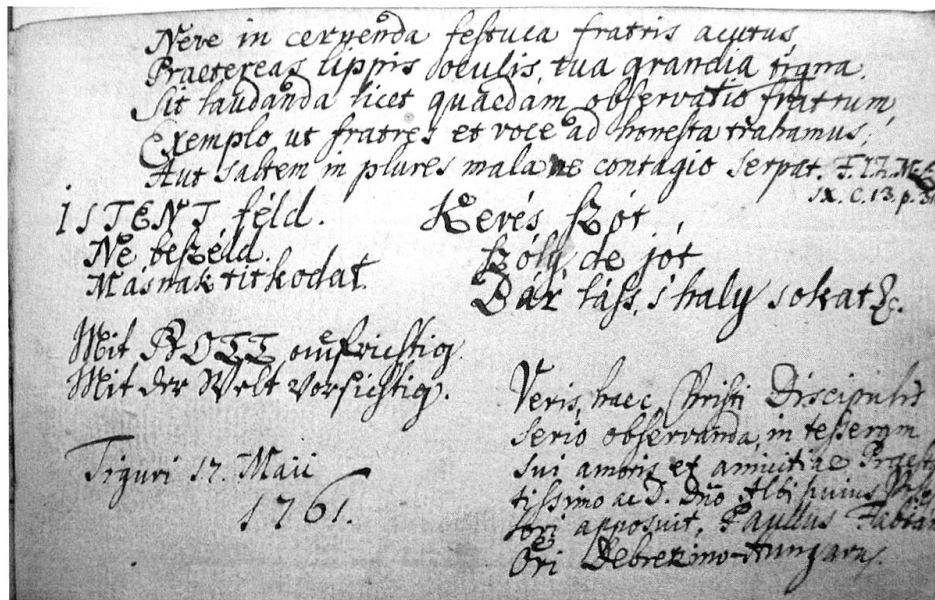 Neve in cernenda festuca fratris acutus
Praetereas lippis oculis, tua grandia tigna.
Sit laudanda licet quaedam observatio fratrum,
Exemplo ut fratres et voce ad honesta trahamus;
Aut saltem in plures mala ne contagio serpat.
IX. C. 13. p.
ISTENT féld. Kevés szót
Ne beszéld. szólj de jót
Másnak titkodat. Bár láss, s' haly sokat &c.
Mit GOTT aufrichtig
Mit der Welt vorsichtig.
Veris, haec, Christi Discipulis
serio observanda, in tesseram
Tiguri 17. Maii sui amoris et amicitiae
1761. tissimo ac D. Dno Albi huius
apposuit, Paullus Fabian
Ori Debrezino-Hungarus.